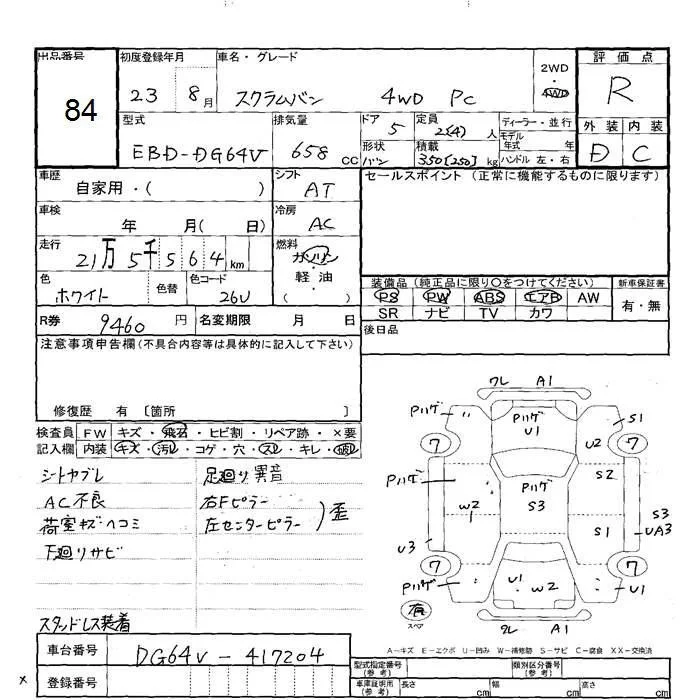 出品番号 初度登録年月 車名・グレード 2WD・4WD 評価点
84 23 8月 スクラムバン 4WD PC R
型式 排気量 ドア 5 定員 2(4)人 ディーラー・並行 外装 内装
EBD-DG64V 658 CC 形状 バン 積載 350[250]kg モデル年式 年 D C
ハンドル 左・右
車歴 自家用・( ) シフト AT セールスポイント (正常に機能するものに限ります)
車検 年 月( 日) 冷房 AC
走行 21万5千564km 燃料 ガソリン
色 ホワイト 色替 色コード 26U 軽油 ( )
装備品 (純正品に限り〇をつけてください) 新車保証書
PS PW ABS エアB AW 有・無
SR ナビ TV カワ
R券 9460円 名変期限 月 日 後日品
注意事項申告欄(不具合内容等は具体的に記入して下さい)
修復歴 有 [箇所 ]
検査員 FW キズ・飛石・ヒビ割・リペア跡・×要
記入欄 内装 キズ・汚レ・コゲ・穴・スレ・キレ・破レ
シートヤブレ 足廻り異音
AC不良 右Fピラー
荷室キズヘコミ 左センターピラー ) 歪
下廻りサビ
スタッドレス装着
ワレ A1
Pハゲ Pハゲ U1 S1
7 U2 7
Pハゲ Pハゲ S2
W2 S3 S3
1 S1 UA3
U3
7 7
Pハゲ U1 W2 U1
有 スペア
ワレ A1
A-キズ E-エクボ U-凹み W-補修跡 S-サビ C-腐食 XX-交換済
車台番号 DG64V-417204 型式指定番号(参考) 類別区分番号(参考)
× 登録番号 車庫証明用(参考) 長さ cm 幅 cm 高さ cm